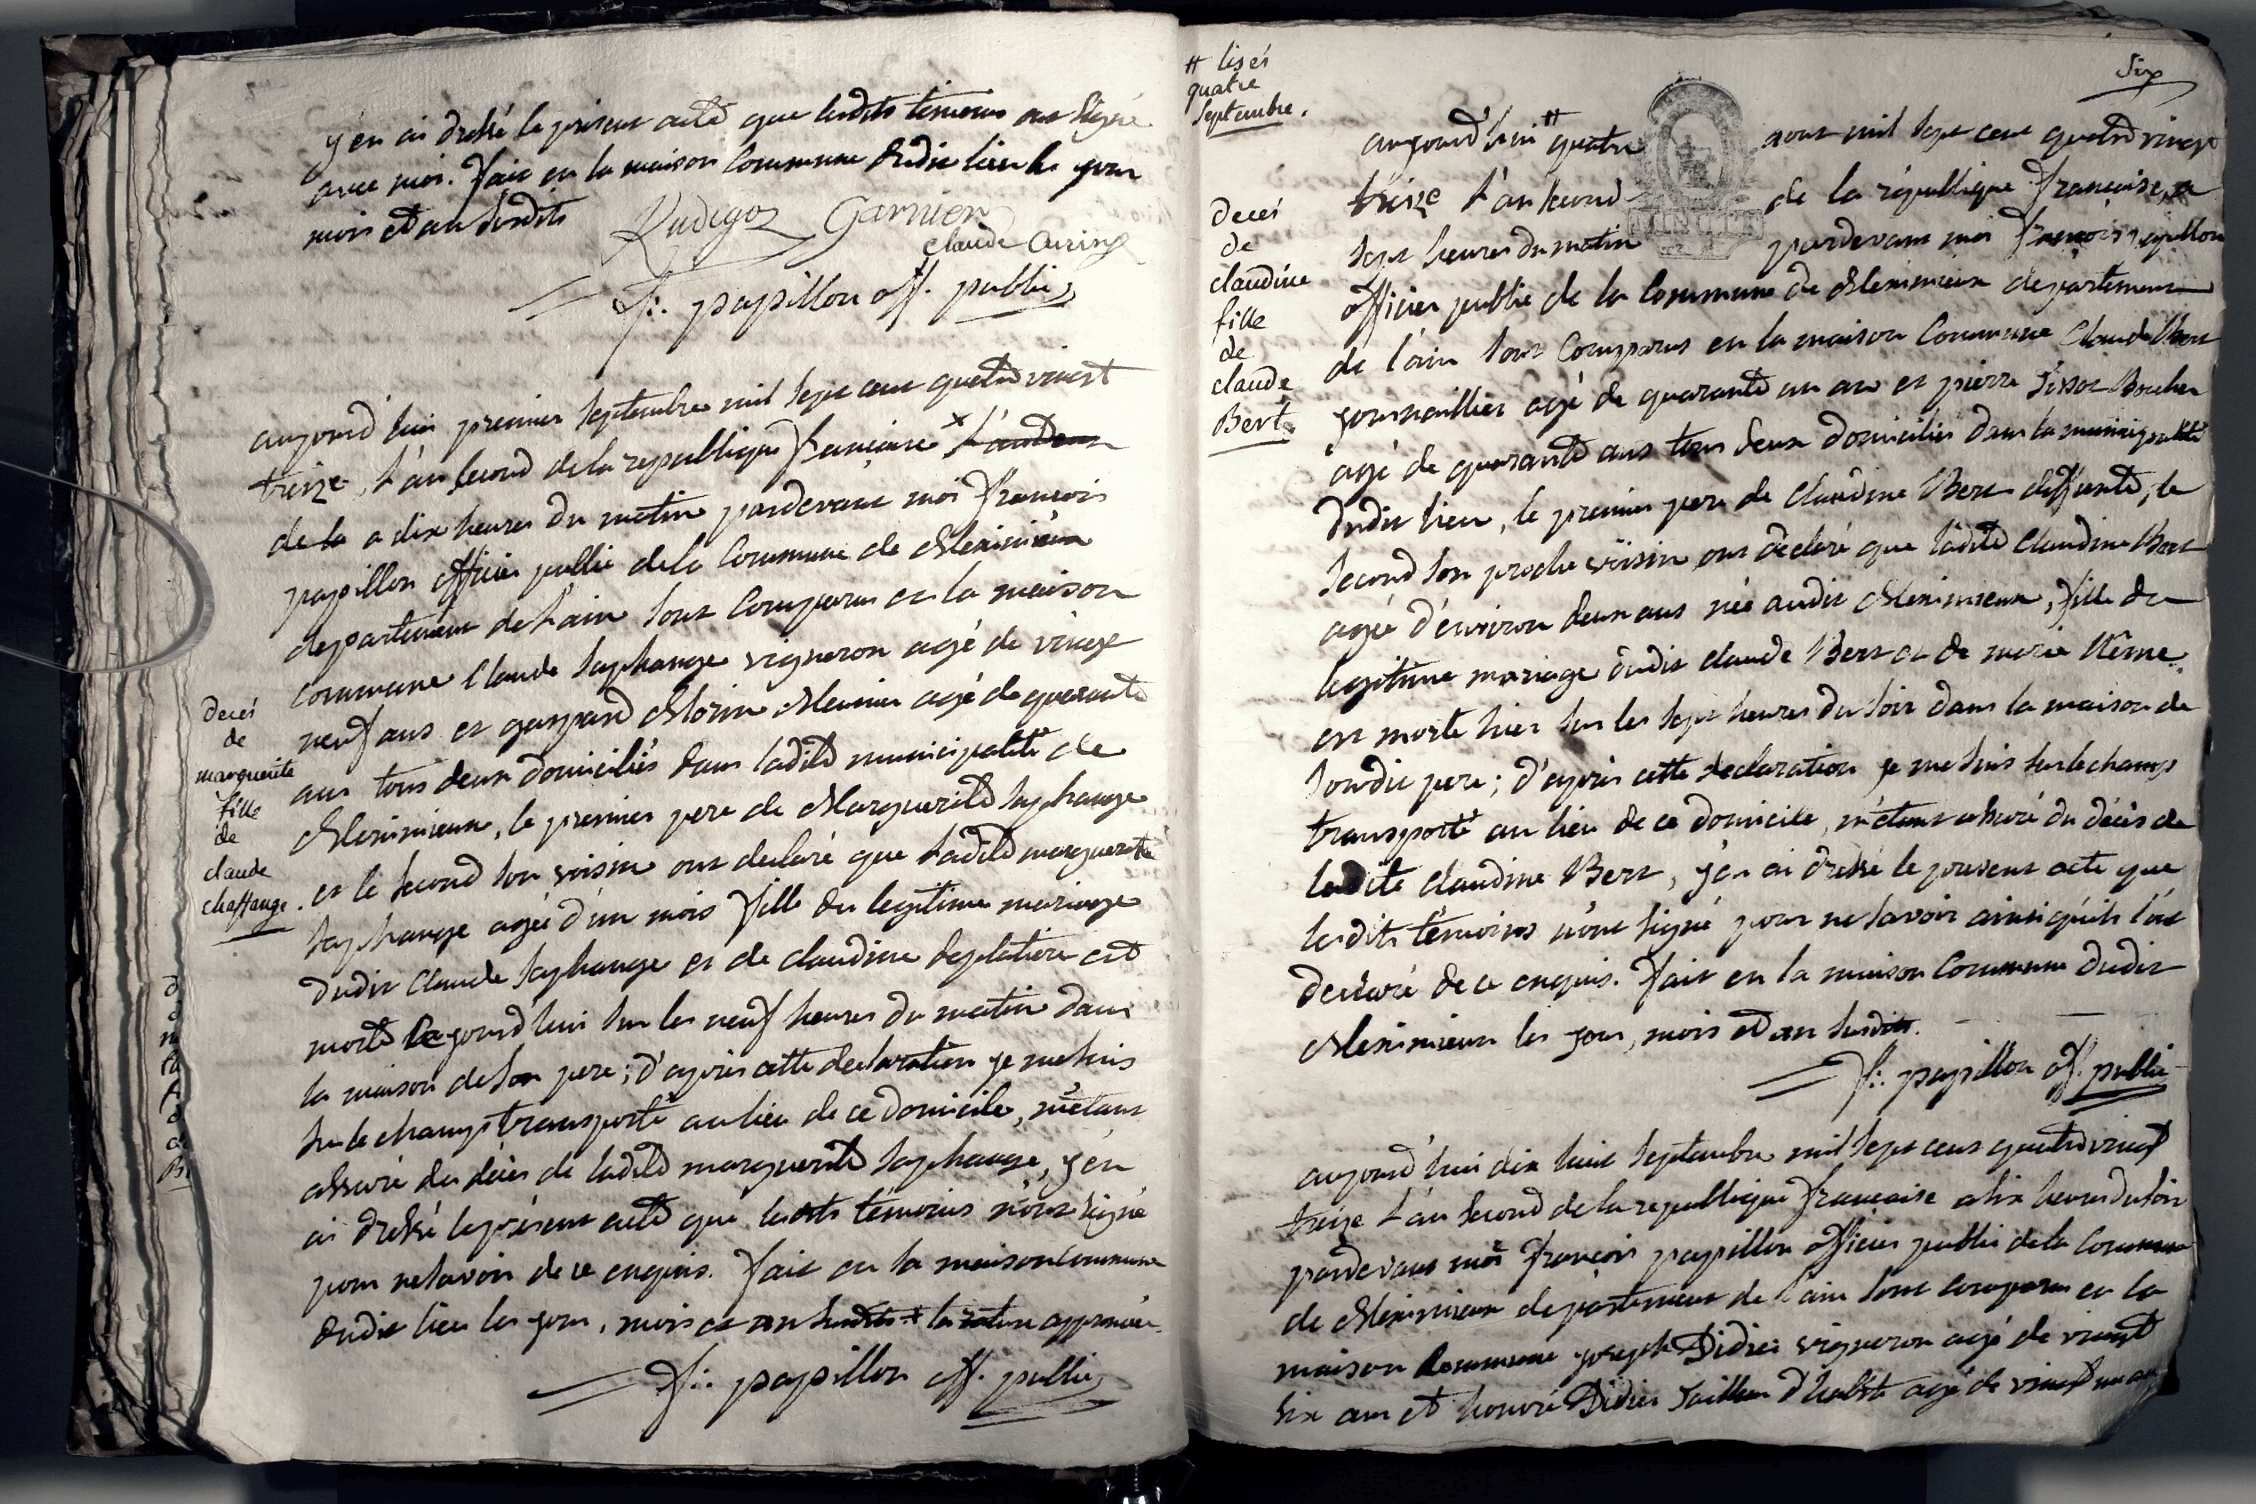 y'en ai dressé le présent acte que lesdits témoins ont signé
avec moi. fait en la maison commune dudit lieu les jour
mois et an susdits
Rudigoz Garnier
claude Curing
f: papillon off. public
decés
de
marguerite
fille
de
claude
chaffange.
aujourd'hui premier septembre mil sept cent quatre vingt
treize, l'an second de la republique francaise x l'an deux
de la a dix heures du matin pardevant moi francois
papillon officier public de la commune de Meximieux
departement de l'ain sont comparus en la maison
commune Claude saphange vigneron agé de vingt
neuf ans et gaspard Morin Meunier agé de quarante
ans tous deux domiciliés dans ladite municipalité de
Meximieux, le premier pere de Marguerite saphange
et le second son voisin ont declaré que ladite marguerite
saphange agée d'un mois fille du legitime mariage
dudit Claude saphange et de claudine deplatiere est
morte ce jourd'hui sur les neuf heures du matin dans
la maison de son pere; d'après cette declaration je me suis
sur le champs transporté au lieu de ce domicile, m'étant
assuré du décès de ladite marguerite saphange, j'en
ai dressé le présent acte que lesdits témoins n'ont signé
pour ne savoir de ce enquis. fait en la maison commune
dudit lieu les jour, mois et an susdits x la rature approuvée
f: papillon off. public
# lisés
quatre
septembre.
six
decés
de
claudine
fille
de
claude
Bert.
aujourd'hui # quatre aout mil sept cent quatre vingt
treize l'an second de la république francaise, a
sept heures du matin pardevant moi francois papillon
officier public de la commune de Meximieux departement
de l'ain sont comparus en la maison commune Claude Bert
journaillier agé de quarante un an et pierre Boucher
agé de quarante ans tous deux domiciliés dans la municipalité
dudit lieu, le premier pere de Claudine Bert deffunte, le
second son proche voisin ont declaré que ladite Claudine Bert
agée d'environ deux ans née audit Meximieux, fille du
legitime mariage dudit claude Bert et de marie
est morte hier sur les sept heures du soir dans la maison de
sondit pere; d'après cette declaration je me suis sur le champs
transporté au lieu de ce domicile, m'étant assuré du décès de
ladite claudine Bert, j'en ai dressé le présent acte que
lesdits témoins n'ont signé pour ne savoir ainsi qu'ils l'ont
declaré de ce enquis. fait en la maison commune dudit
Meximieux les jour, mois et an susdits.
f: papillon off. public
aujourd'hui dix huit septembre mil sept cent quatre vingt
treize l'an second de la republique francaise a six heures du soir
pardevant moi francois papillon officier public de la commune
de Meximieux departement de l'ain sont comparus en la
maison commune joseph Didier vigneron agé de vingt
six ans et honoré Didier tailleur d'habits agé de vingt un ans